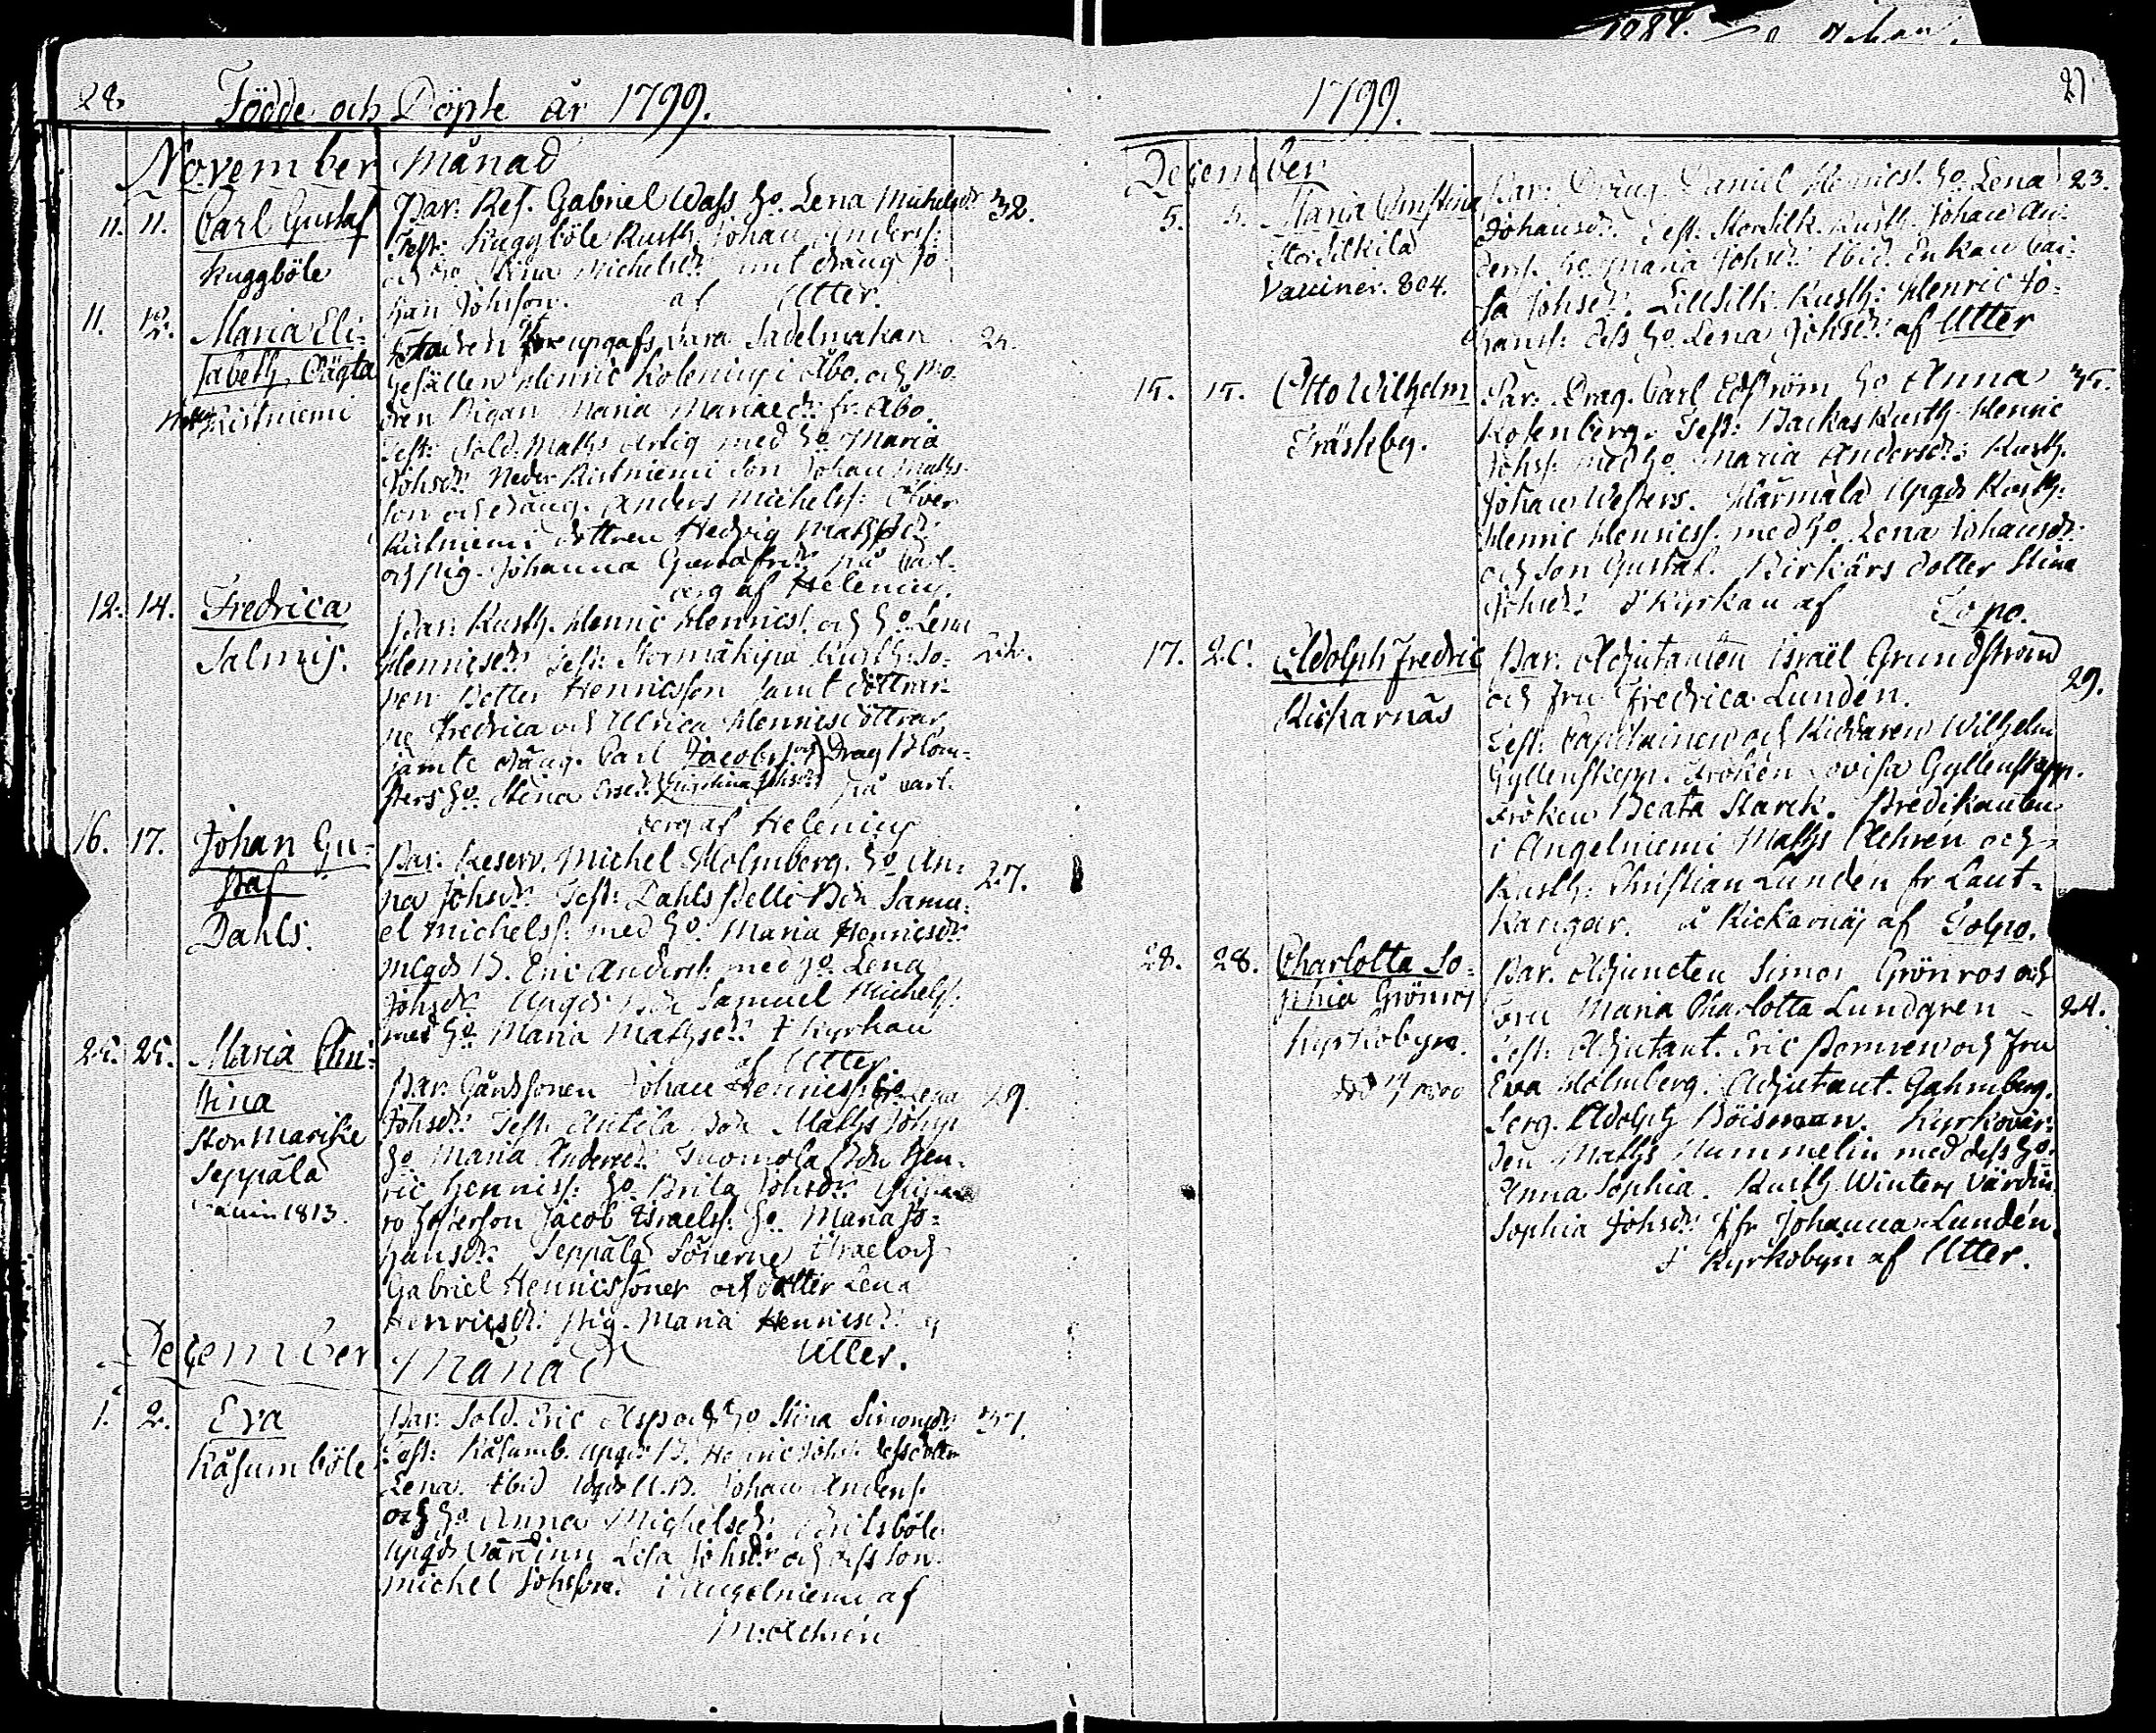 28.
Födde och Döpte år 1799.
November Månad
11. 11. Carl Gustaf
Kuggböle
Par: Res. Gabriel Wass h:o Lena Michelsdr 32.
Test: Kuggböle Rusth. Johan Anderss:
och h:o Stina Michelsdr: samt dräng Jo-
han Johsson. af Utter.
11. 12. Maria Eli-
sabeth, Oägta
Ristniemi
Fadren upgafs vara Sadelmakare
Gesällen Henric Kolenius i Åbo. och Mo-
dren Pigan Maria Mariaedr: fr. Åbo.
Test: Sold. Maths Artig med h:o Maria
Johsdr: Neder Ristniemi Son Johan Maths-
son och dräng. Anders Michelss: Öfver
Ristniemi dottren Hedvig Mathsdr:
och pig. Johanna Gustafsdr: på Carl-
berg af Helenius.
12. 14. Fredrica
Salmis.
Par: Rusth. Henric Henricss. och h:o Lena
Henricsdr: Test: Stormäkipä Rusth: So-
nen Petter Henricsson samt döttrar-
ne Fredrica och Ulrica Henricsdöttrar,
jämte dräng. Carl Jacobss. och Drag. Blom-
sters h:o Stina Ersdr: Christina Johsdr: på Carl-
berg af Helenius
16. 17. Johan Gu-
staf
Dahls.
Par: Reserv. Michel Holmberg. h:o An- 27.
na Johsdr: Test: Dahls Pelle Bdn Samu-
el Michelss: med h:o Maria Henricsdr:
Mgds B. Eric Anderss: med h:o Lena
Johsdr: Upgds Bdn Samuel Michelss:
med h:o Maria Mathsdr: I Kyrkan
af Utter
25. 25. Maria Chri-
stina
Stor Marihe
Seppälä
Vaccin 1813.
Par: Gårdssonen Johan Henricss h:o Lena 29.
Johsdr: Test: Antila Bdn Maths Johss
h:o Maria Andersdr: Tuomola Bdn Hen-
ric Henricss: h:o Brita Johsdr:
Jacob Israelss: h:o Maria Jo-
hansdr: Seppälä Sönerne Israel och
Gabriel Henricssöner och dotter Lena
Henricsdr: Pig. Maria Henricsdr: af
Utter.
December Månad
1. 2. Eva
Kåsumböle
Par: Sold. Eric Asp och h:o Stina Simonsdr: 37.
Test: Kåsumb. Upgds B. Henric Johss: dess dotter
Lena. Ibid. Johan Anderss.
och h:o Anna Michelsdr: Britsböle
Upgds Värdinn Lisa Johsdr och dess Son
Michel Johsson. i Angelniemi af
M: Aehrén
1799. 27
December
5. 5. Maria Christina
Storsilkilä
Vacciner. 804.
Par: Dräng Daniel Henricss. h:o Lena 23.
Johansdr: Test: Storsilk. Rusth. Johan An-
derss. h:o Maria Johsdr: Ibid. Enkan Cai-
sa Johsdr: Lillsilk. Rusth: Henric Jo-
hanss: dess h:o Lena Johsdr: af Utter
15. 15. Otto Wilhelm
Träskby.
Par: Drag. Carl Edström h:o Anna 35.
Rosenberg. Test: Backas Rusth. Henric
Johss: med h:o Maria Andersdr: Rusth.
Johan Westers. Härmälä Upgds Rusth:
Henric Henricss. med h:o Lena Johansdr:
och Son Gustaf. Birkärs dotter Stina
Johsdr: I Kyrkan af Tolpo.
17. 20. Adolph Fredric
Kickarnäs
Par. Adjutanten Israël Grundström
och Fru Fredrica Lundén. 29.
Test: Capitainen och Riddaren Wilhelm
Gyllenskepp. Fröken Lovisa Gyllenskepp.
Fröken Beata Starck. Predikanten
i Angelniemi Maths Aehren och
Rusth: Christian Lundén fr Laut-
kangar. å Kickarnäs af Tolpo.
28. 28. Charlotta So-
phia Grönros
Kyrkobyn.
Par. Adjuncten Simon Grönros och
Fru Maria Charlotta Lundgren 24.
Test: Adjutant. Eric Pomren och Fru
Eva Holmberg. Adjutant. Gahmberg.
Serg. Adolph Böisman. Kyrkovär-
den Maths Hummelin med dess h:o
Anna Sophia. Rusth. Winters Värdin
Sophia Johsdr: Jfr Johanna Lundén
I Kyrkobyn af Utter.